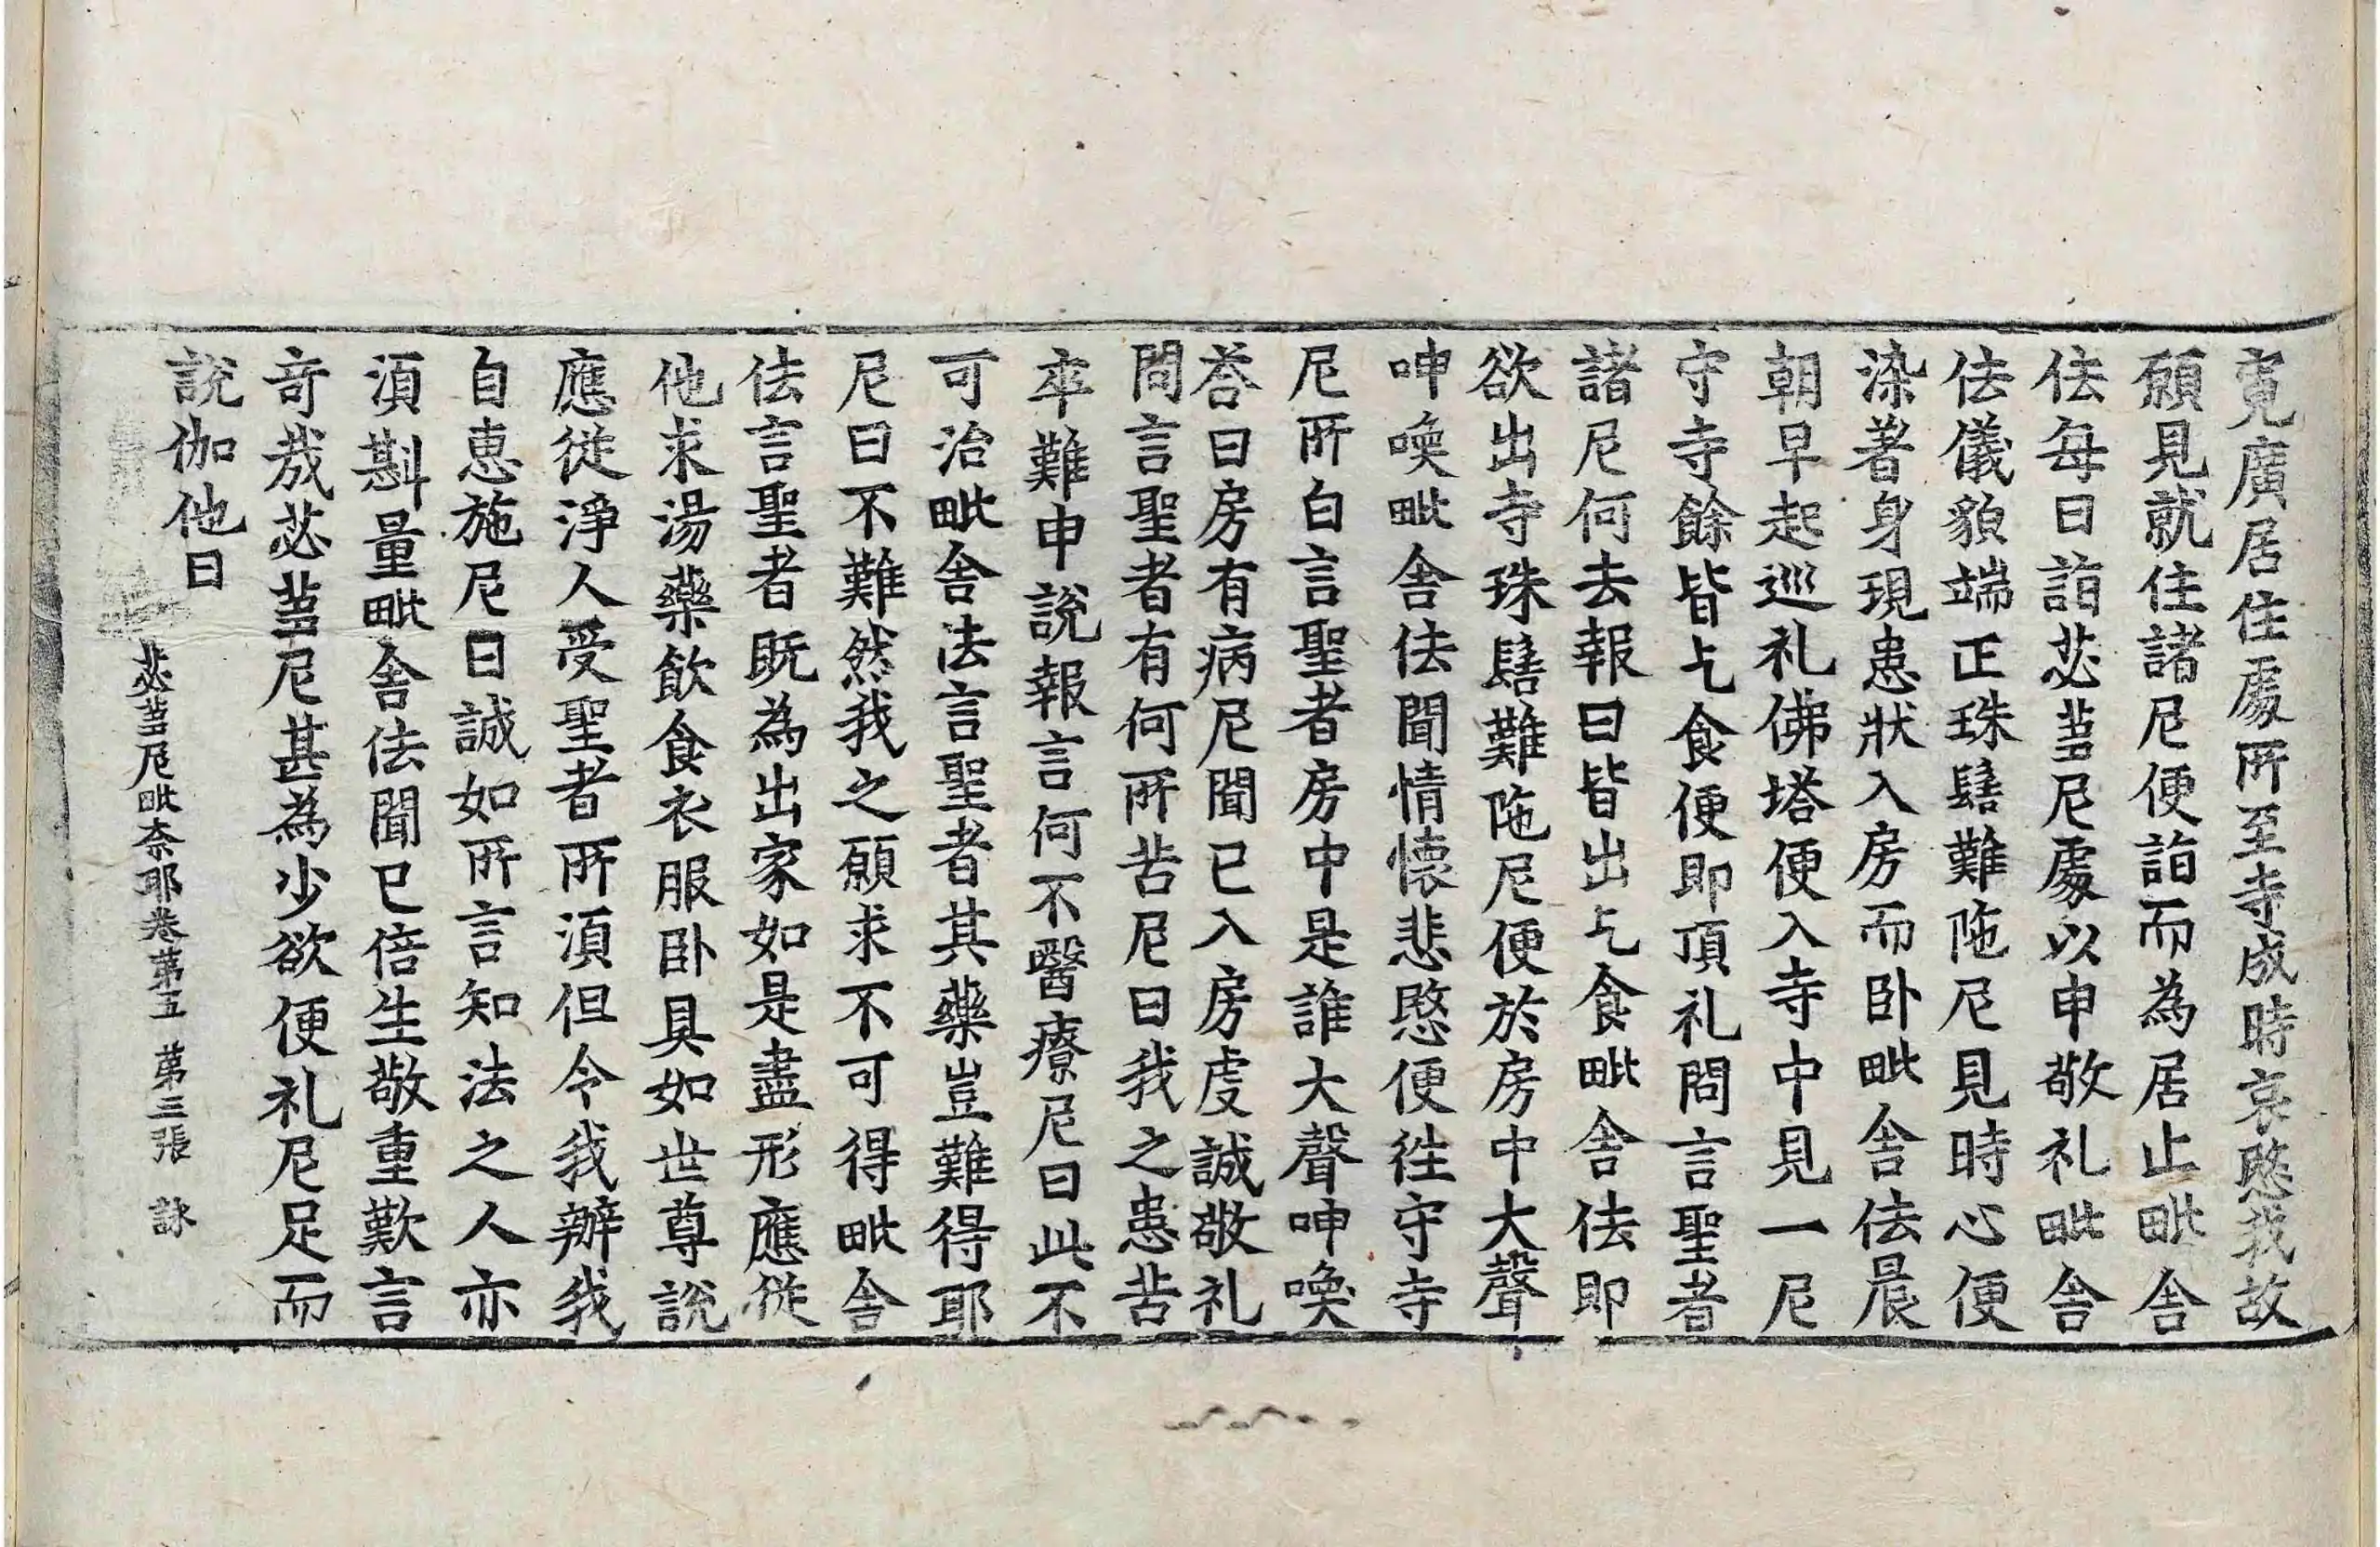 寬廣居住處所至寺成時哀愍我故
願見就住諸尼便詣而為居止毗舍
佉每日詣苾蒭尼處以申敬礼毗舍
佉儀貌端正珠髻難陁尼見時心便
染著身現患狀入房而臥毗舍佉晨
朝早起巡礼佛塔便入寺中見一尼
守寺餘皆乞食便即頂礼問言聖者
諸尼何去報曰皆出乞食毗舍佉即
欲出寺珠髻難陁尼便於房中大聲
呻喚毗舍佉聞情懷悲愍便往守寺
尼所白言聖者房中是誰大聲呻喚
荅曰房有病尼聞已入房虔誠敬礼
問言聖者有何所苦尼曰我之患苦
卒難申說報言何不醫療尼曰此不
可治毗舍法言聖者其藥豈難得耶
尼曰不難然我之願求不可得毗舍
佉言聖者既為出家如是盡形應從
他求湯藥飲食衣服臥具如世尊說
應從淨人受聖者所湏但令我辦我
自惠施尼曰誠如所言知法之人亦
湏斟量毗舍佉聞已倍生敬重歎言
奇哉苾蒭尼甚為少欲便礼尼足而
說伽他曰
苾蒭尼毗奈耶卷第五 第三張 詠